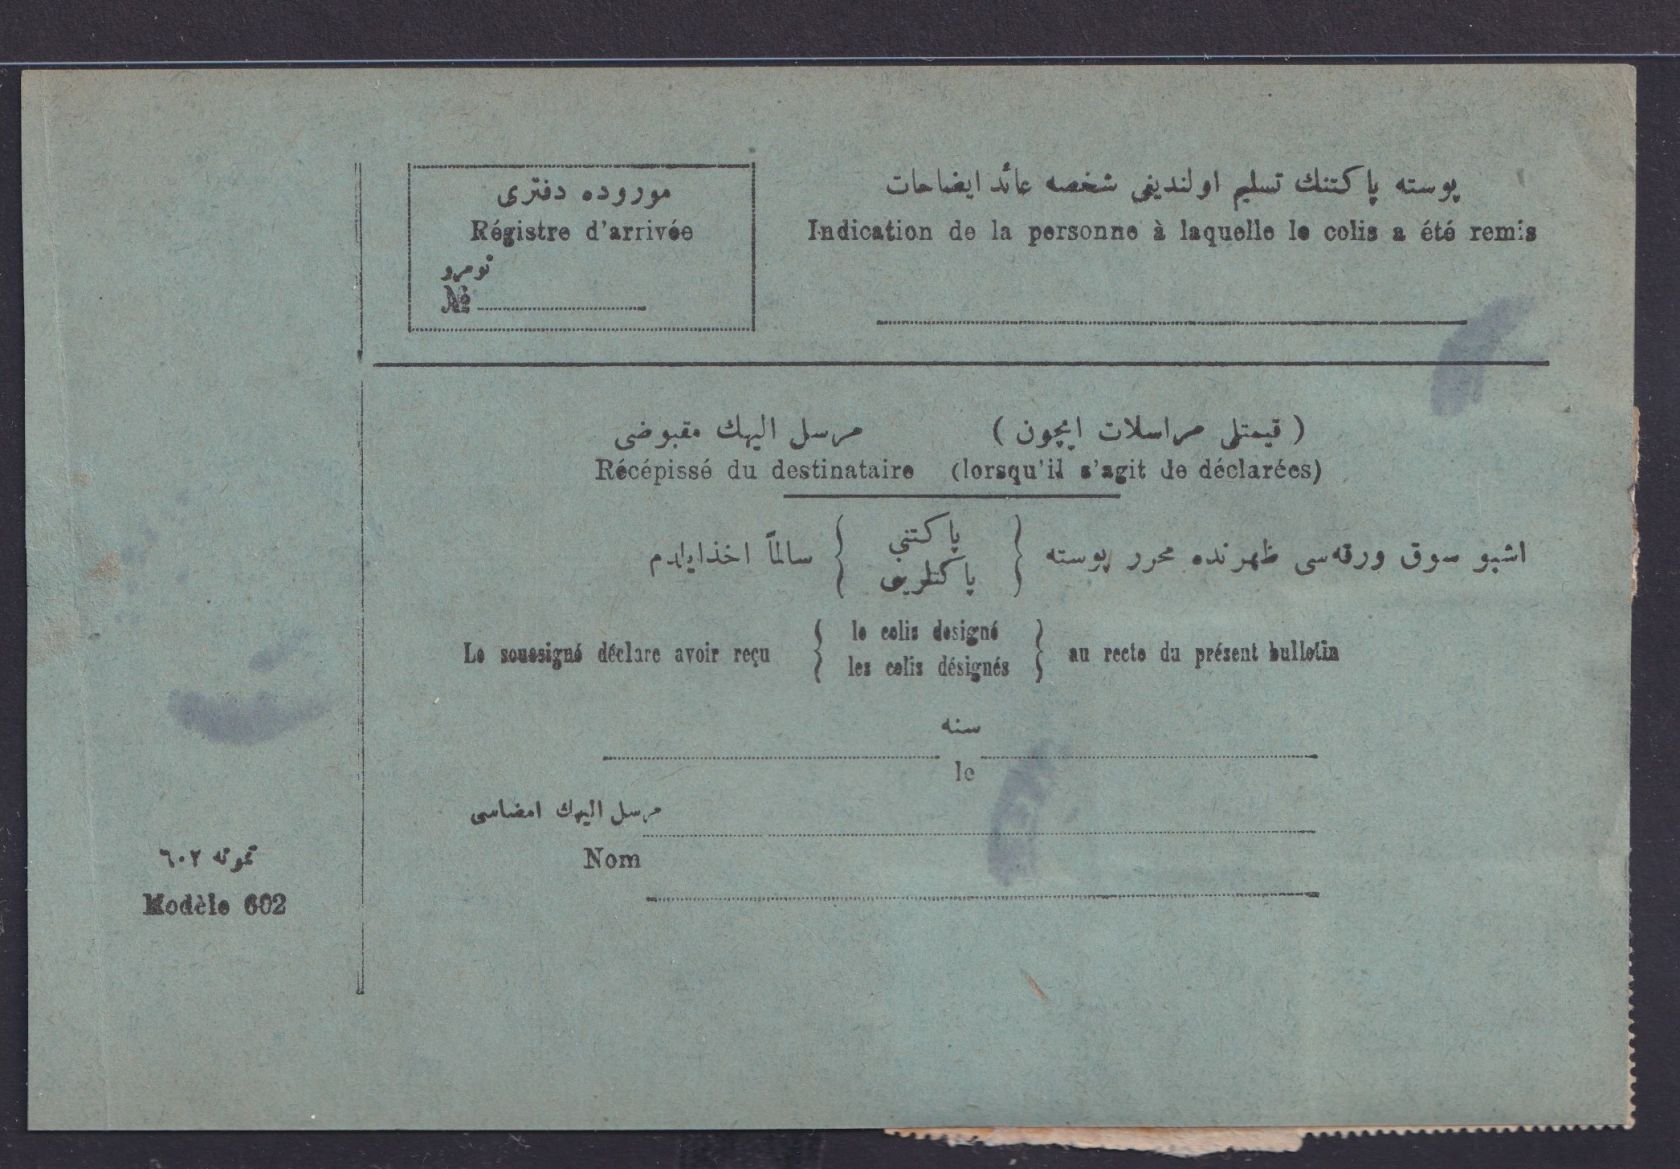 موروده دفتری
Régistre d'arrivée
نومرو
№
پوسته پاكتنك تسليم اولنديغی شخصه عائد ايضاحات
Indication de la personne à laquelle le colis a été remis
مرسل اليهك مقبوضی ( قيمتلی مراسلات ايچون )
Récépissé du destinataire (lorsqu'il s'agit de déclarées)
اشبو سوق ورقه‌سی ظهرنده محرر پوسته { پاكتنی پاكتلرينی } سالماً اخذايلدم
Le soussigné déclare avoir reçu { le colis designé les colis désignés } au recto du présent bulletin
سنه
le
مرسل اليهك امضاسی
Nom
نمونه ٦٠٢
Modèle 602